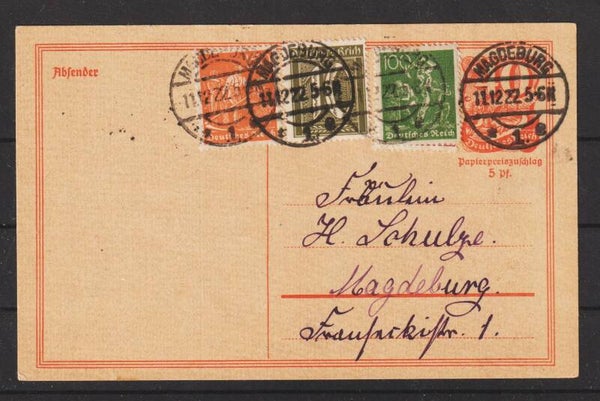 Absender
MAGDEBURG
11.12.22.5-6N
* 1 e
MAGDEBURG
11.12.22.5-6N
* 1 e
100
Deutsches Reich
MAGDEBURG
11.12.22.5-6N
* 1 e
Papierpreiszuschlag
5 Pf.
Fräulein
H. Schulze.
Magdeburg.
Franseckistr. 1.